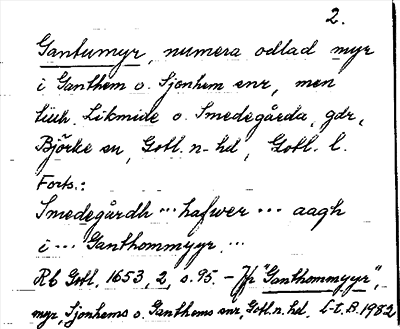 2.
Gantumyr, numera odlad myr
i Ganthem o. Sjonhem snr, men
tillh. Likmide o. Smedegårda, gdr,
Björke sn, Gotl. n. hd, Gotl. l.
Forts.:
Smedegårdh ... hafwer ... aagh
i ... Ganthommyyr. ...
Rb Gotl. 1653, 2, s. 95. – Jfr "Ganthommyyr",
myr, Sjonhems o. Ganthems snr, Gotl. n. hd. L-t. B. 1982